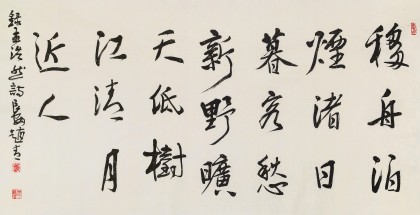 移舟泊
煙渚日
暮客愁
新野曠
天低樹
江清月
近人
錄孟浩然詩